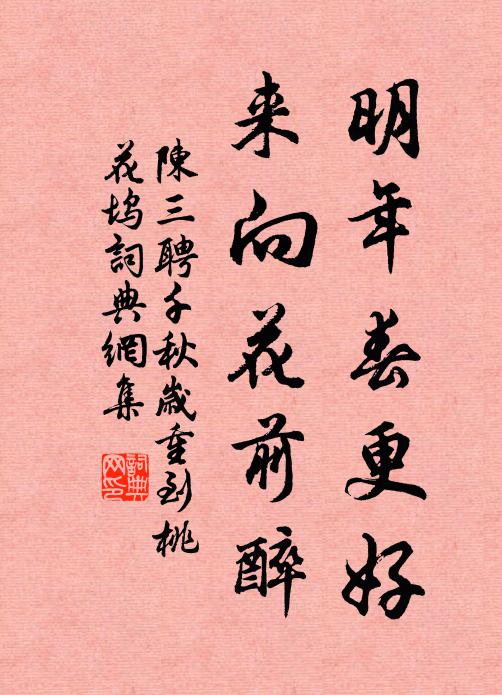 明年春更好
来向花前醉
陳三聘千秋歲重到桃
花塢詞典網集
詞典
网印